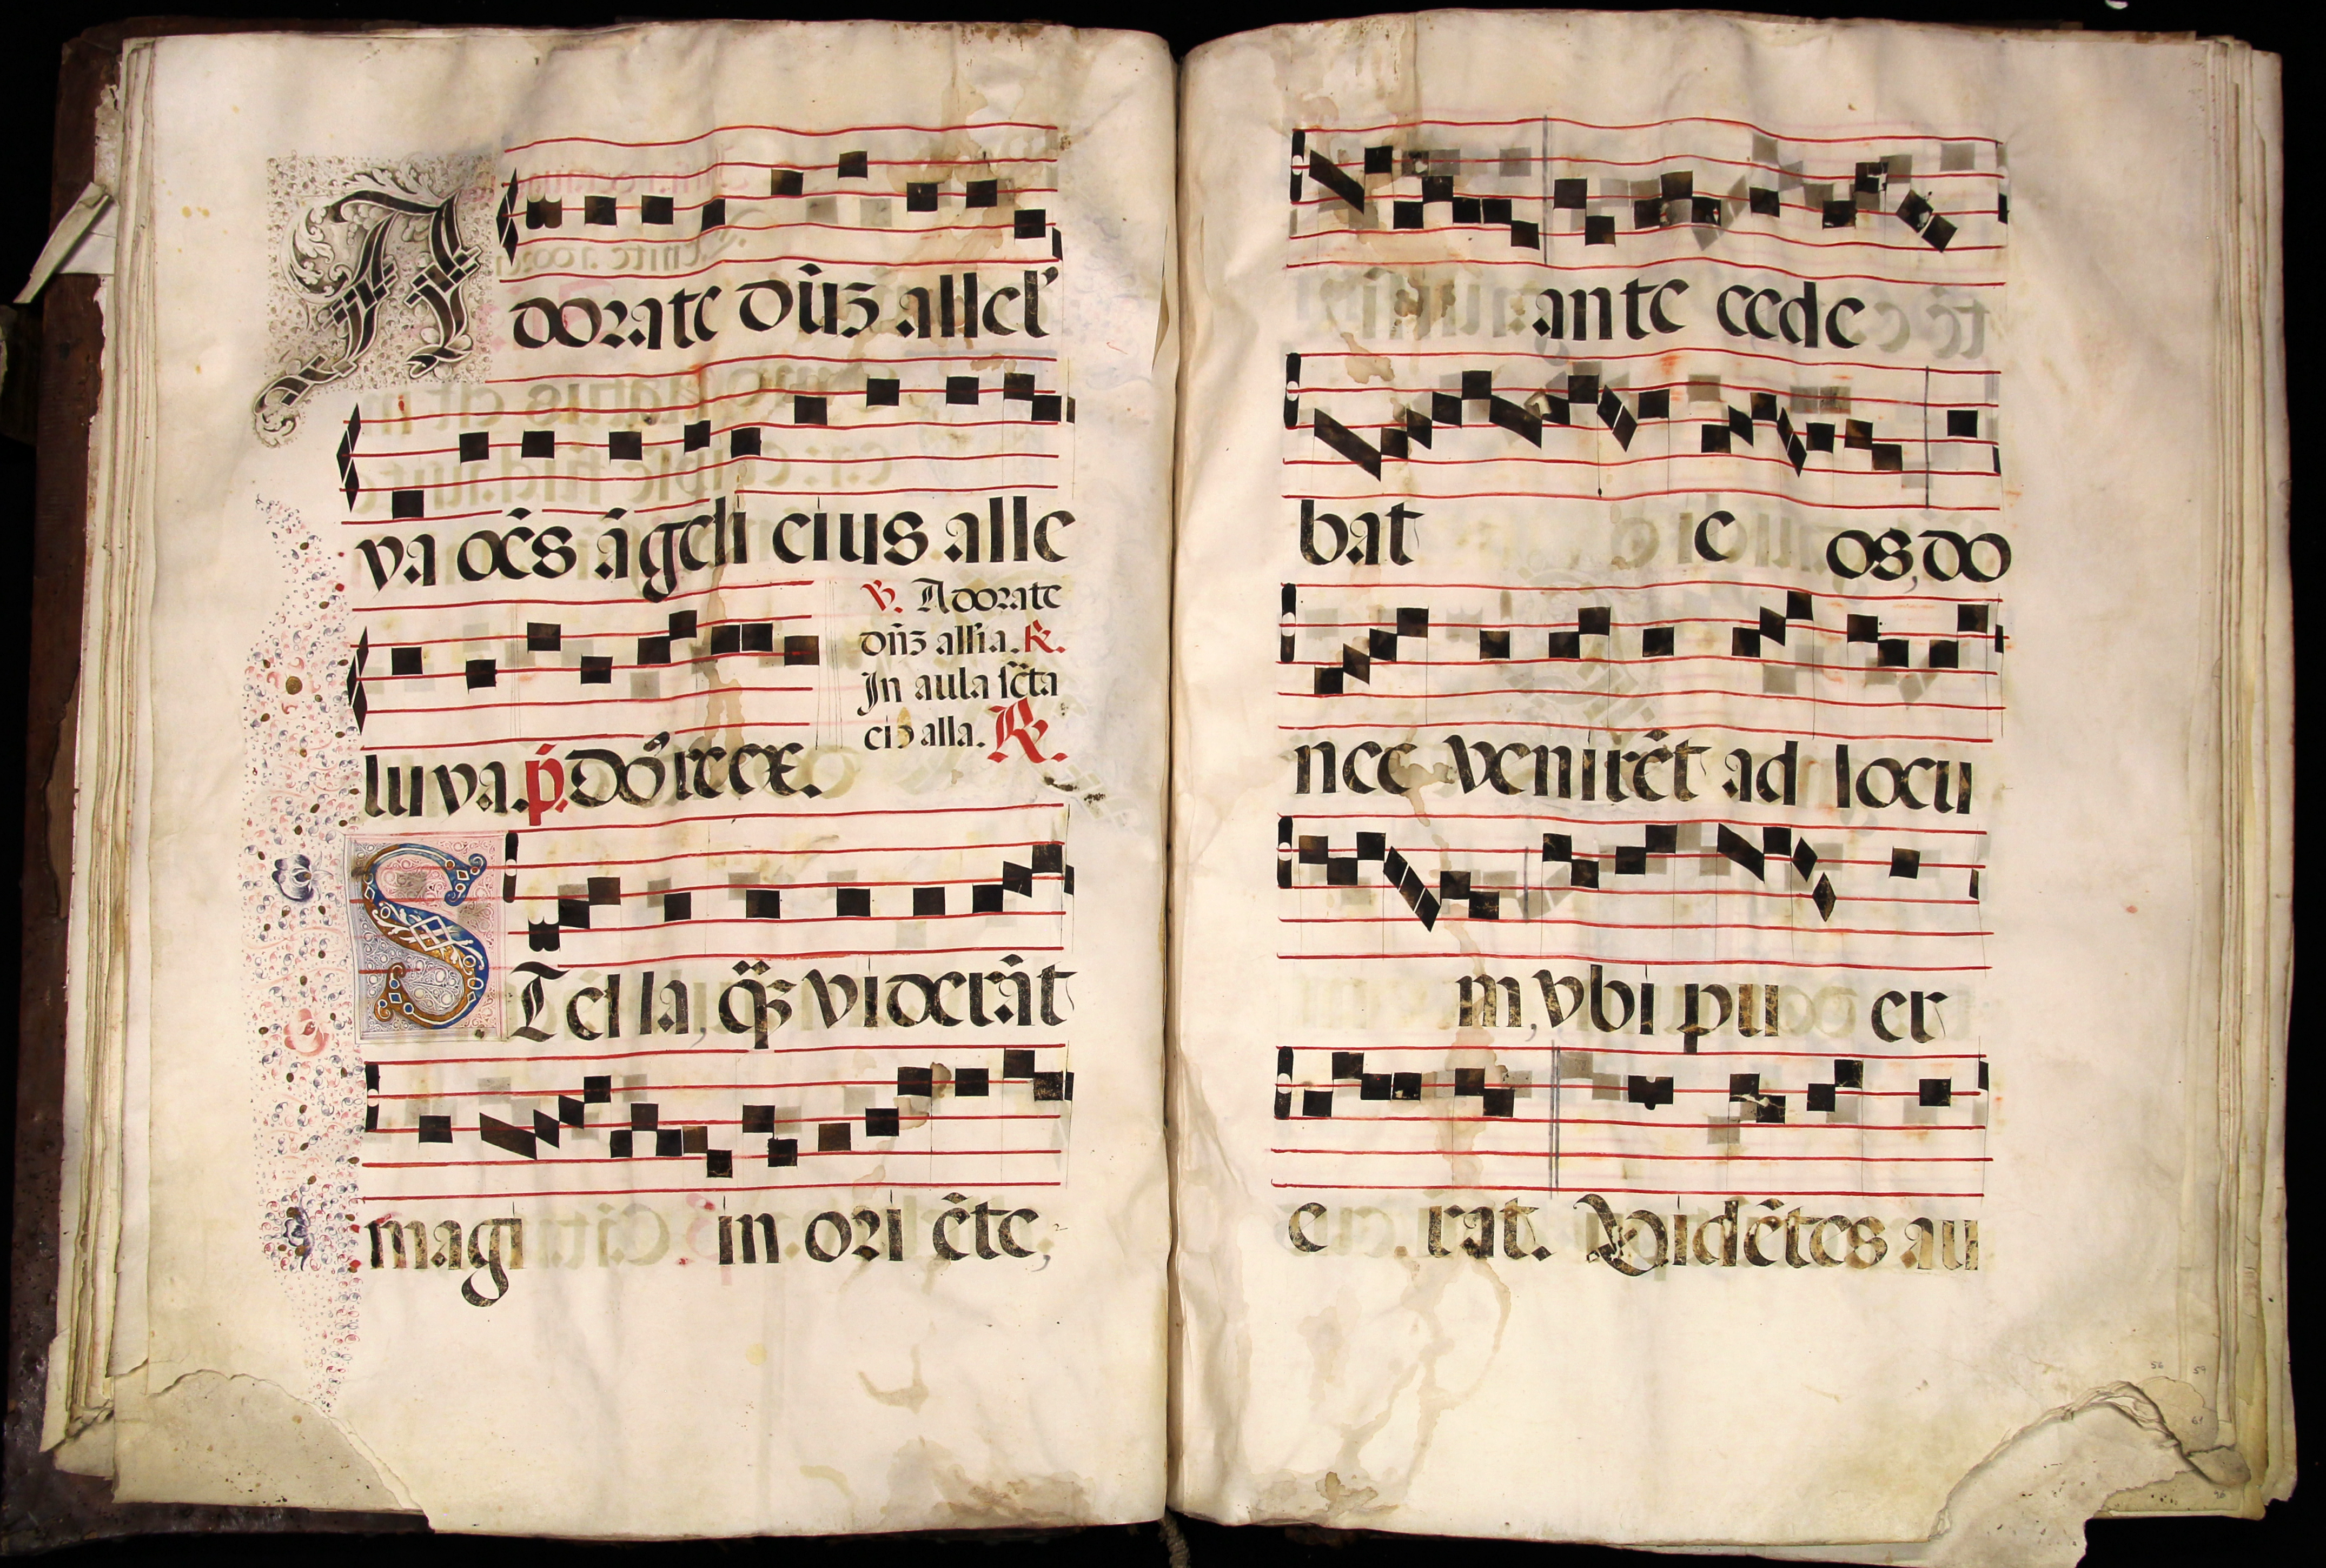 Adorate dn̄ʒ allel'
ya oēs āgeli eius alle
luya. p̄. Dōs rex.
v. Adorate
dn̄ʒ all'ia. R.
In aula sc̄ta
eiꝰ alla. R.
STella, qʒ̄ viderāt
magi in ori ēte,
ante cede
bat e os, do
nec venirēt ad locu
m, vbi pu er
e rat. Vidētes au